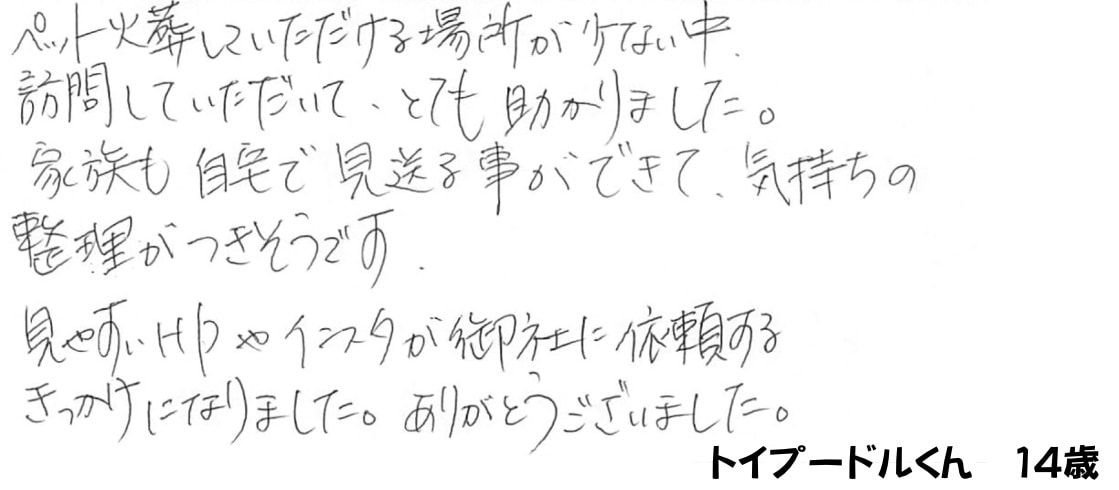 ペット火葬していただける場所が少ない中、
訪問していただいて、とても助かりました。
家族も自宅で見送る事ができて、気持ちの
整理がつきそうです.
見やすいHPやインスタが御社に依頼する
きっかけになりました。ありがとうございました。
トイプードルくん　14歳